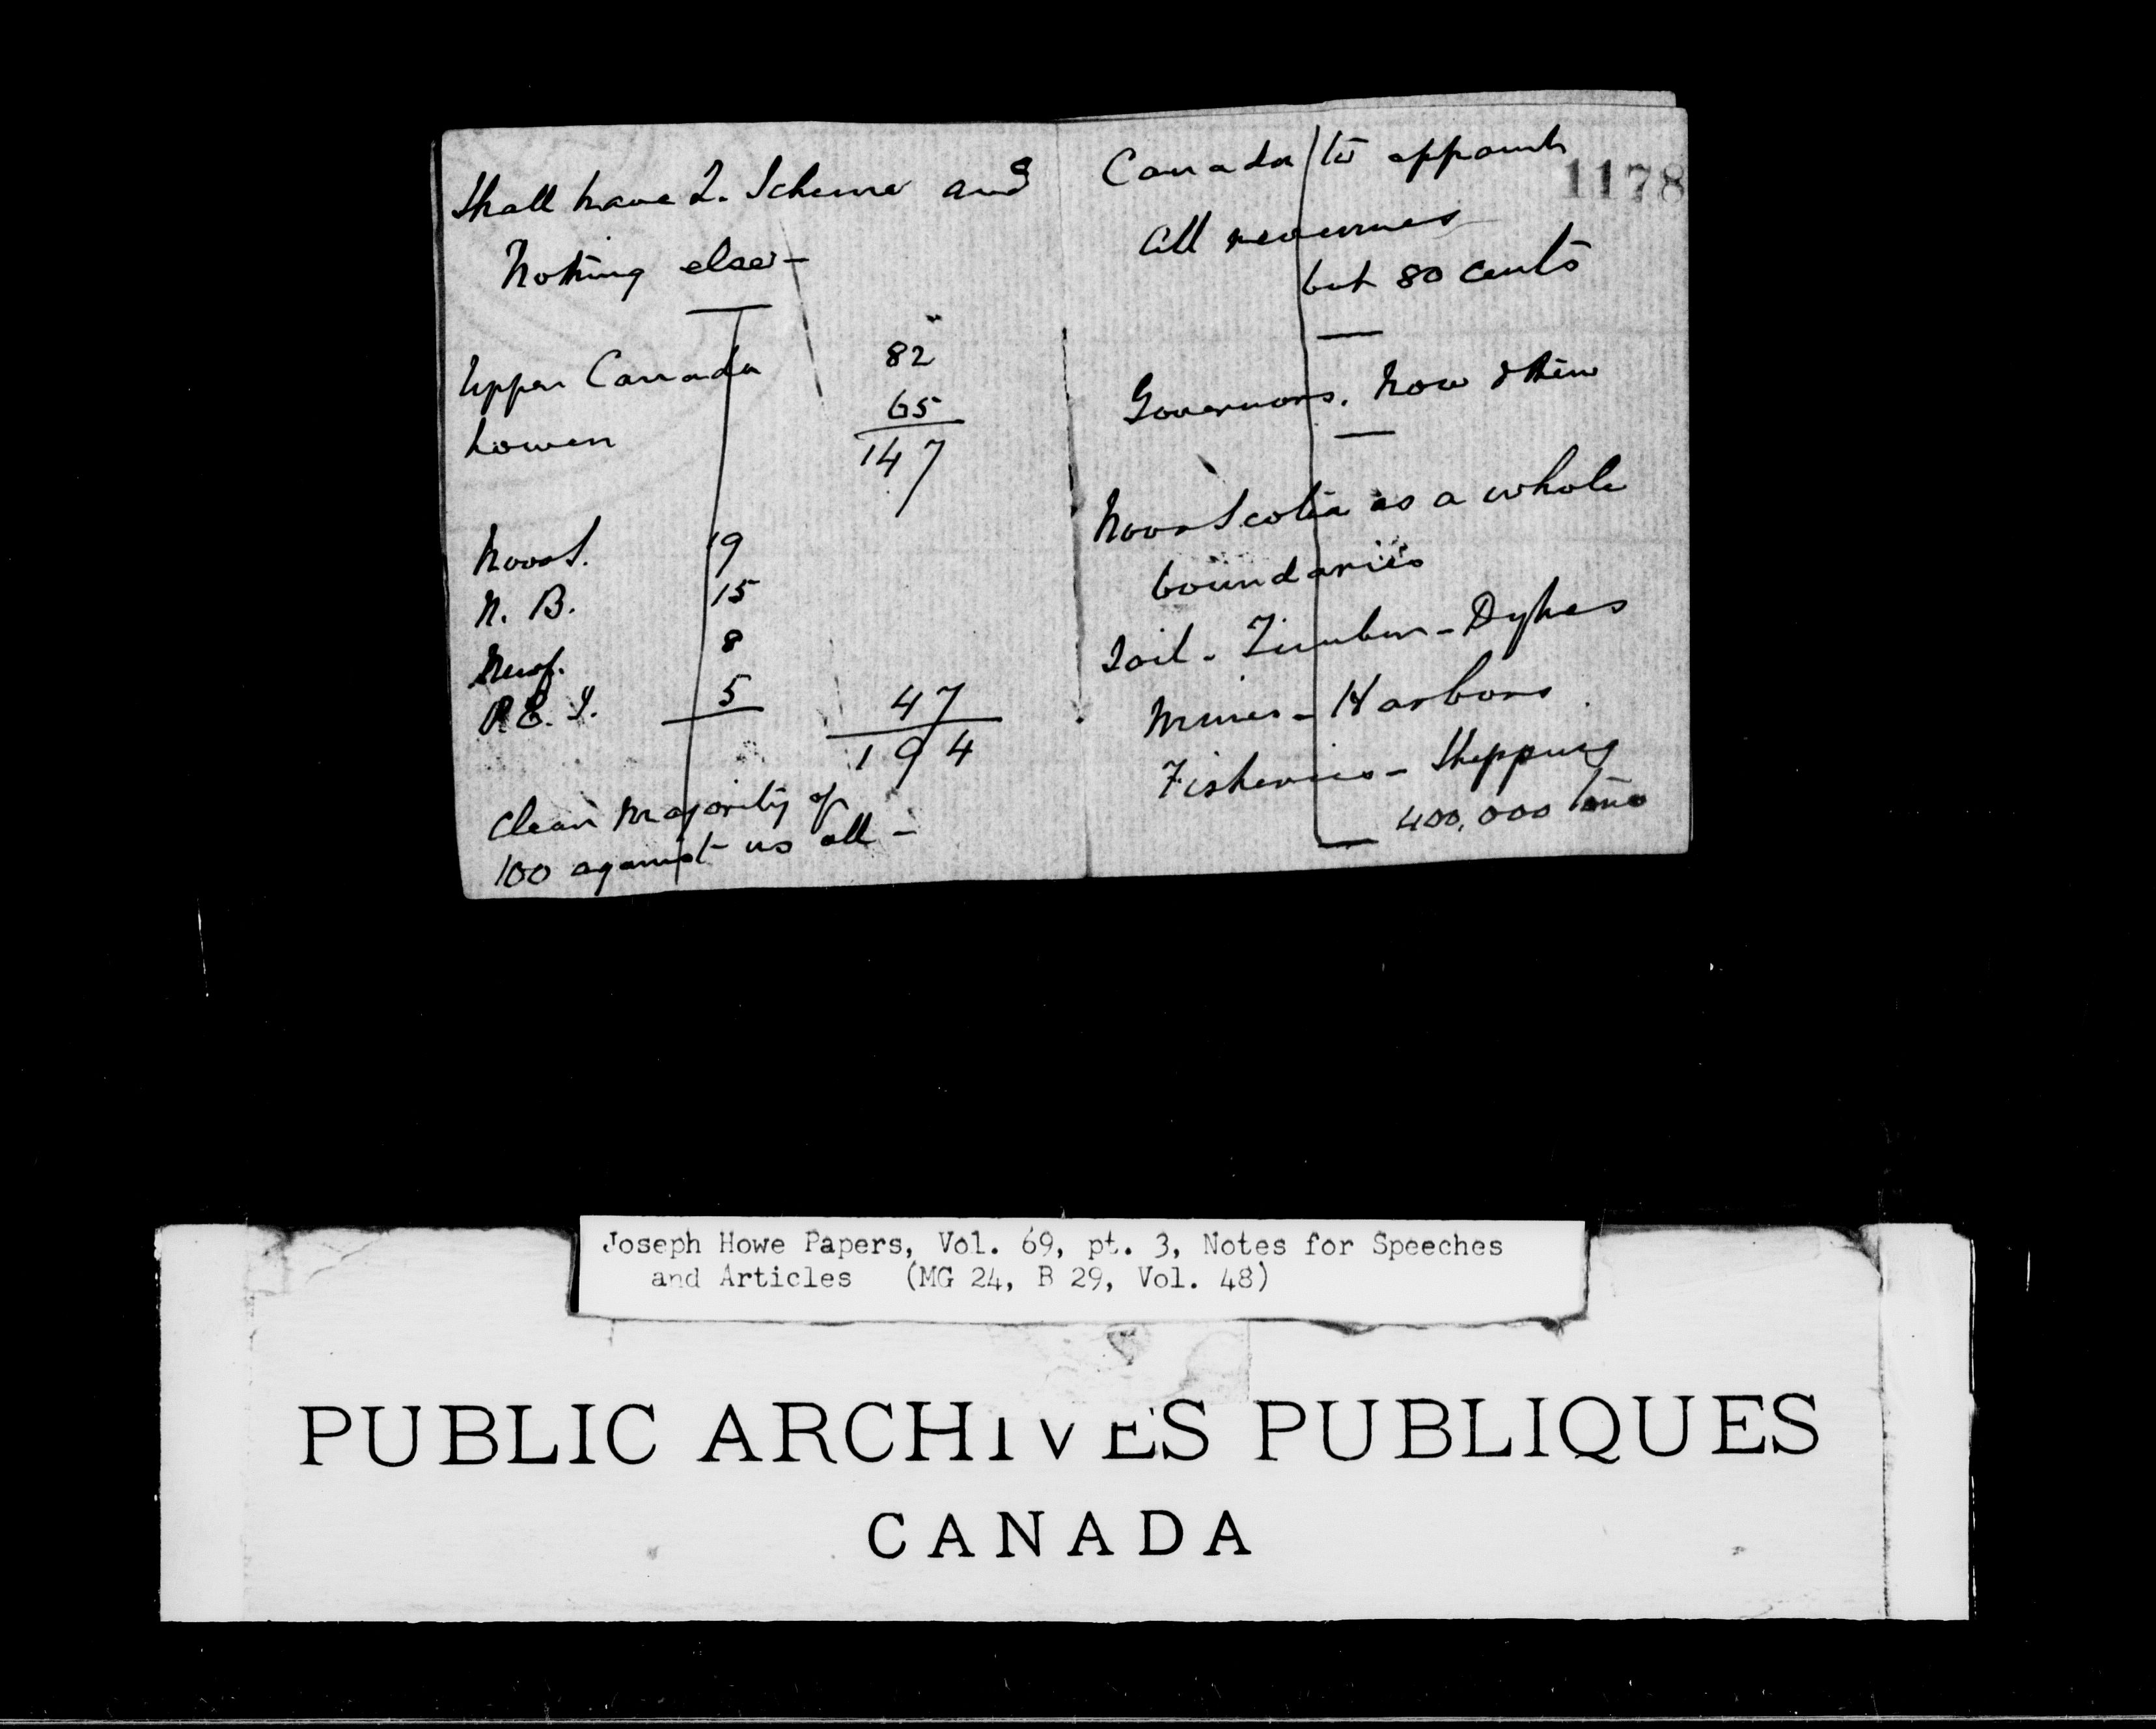 Shall have Q. Scheme and
Nothing else-
Upper Canada 82
Lower 65
147
Nova S. 19
N. B. 15
Newf. 8
P. E. I. 5 47
194
Clear majority of
100 against us all -
Canada to appoint
1178
All revenues
but 80 cents
Governors. Now & then
Nova Scotia as a whole
boundaries
Soil - Timber - Dykes
Mines - Harbors
Fisheries - Shipping
400,000 tons
Joseph Howe Papers, Vol. 69, pt. 3, Notes for Speeches
and Articles (MG 24, B 29, Vol. 48)
PUBLIC ARCHIVES PUBLIQUES
CANADA